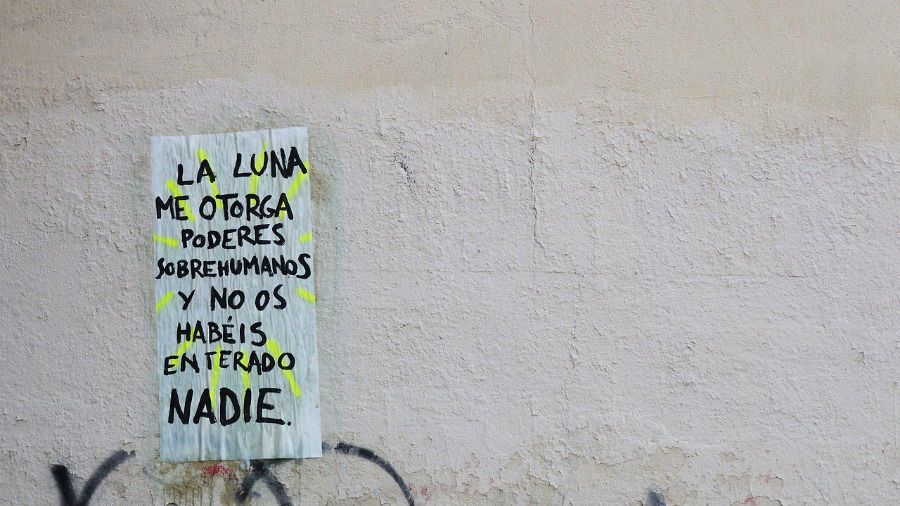 LA LUNA
ME OTORGA
PODERES
SOBREHUMANOS
Y NO OS
HABÉIS
ENTERADO
NADIE.